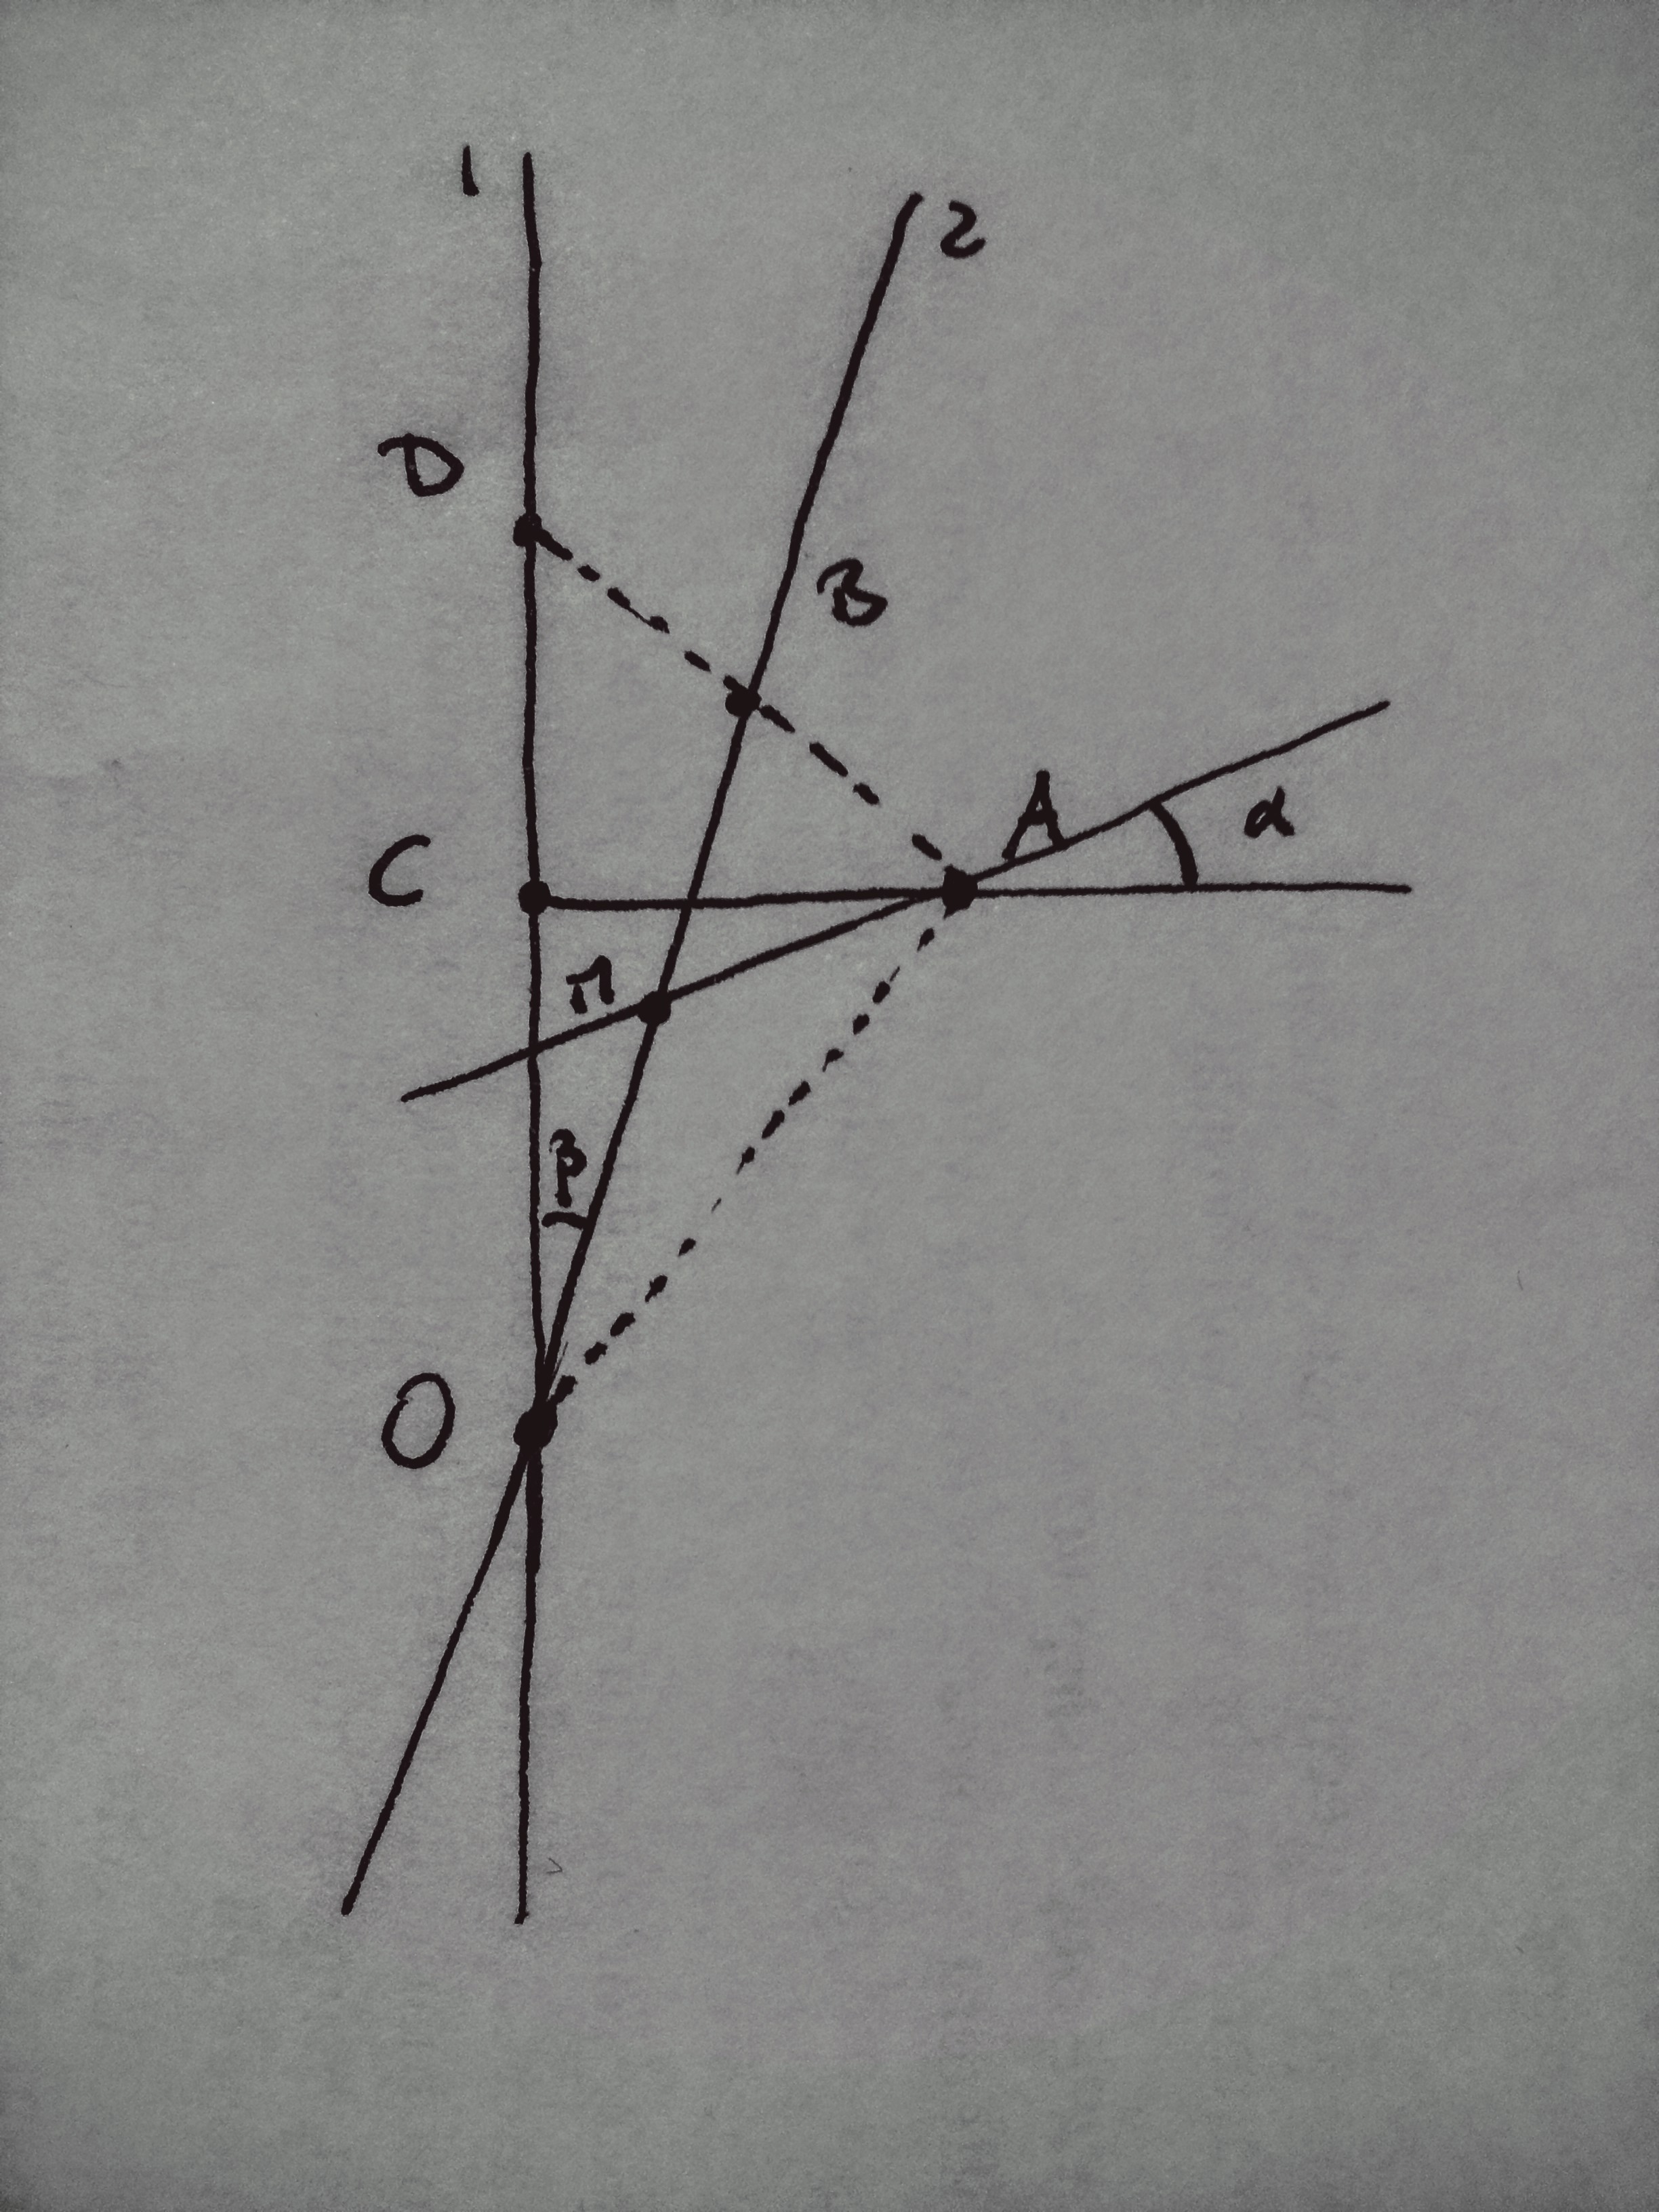 1
2
D
B
A
α
C
П
β
O